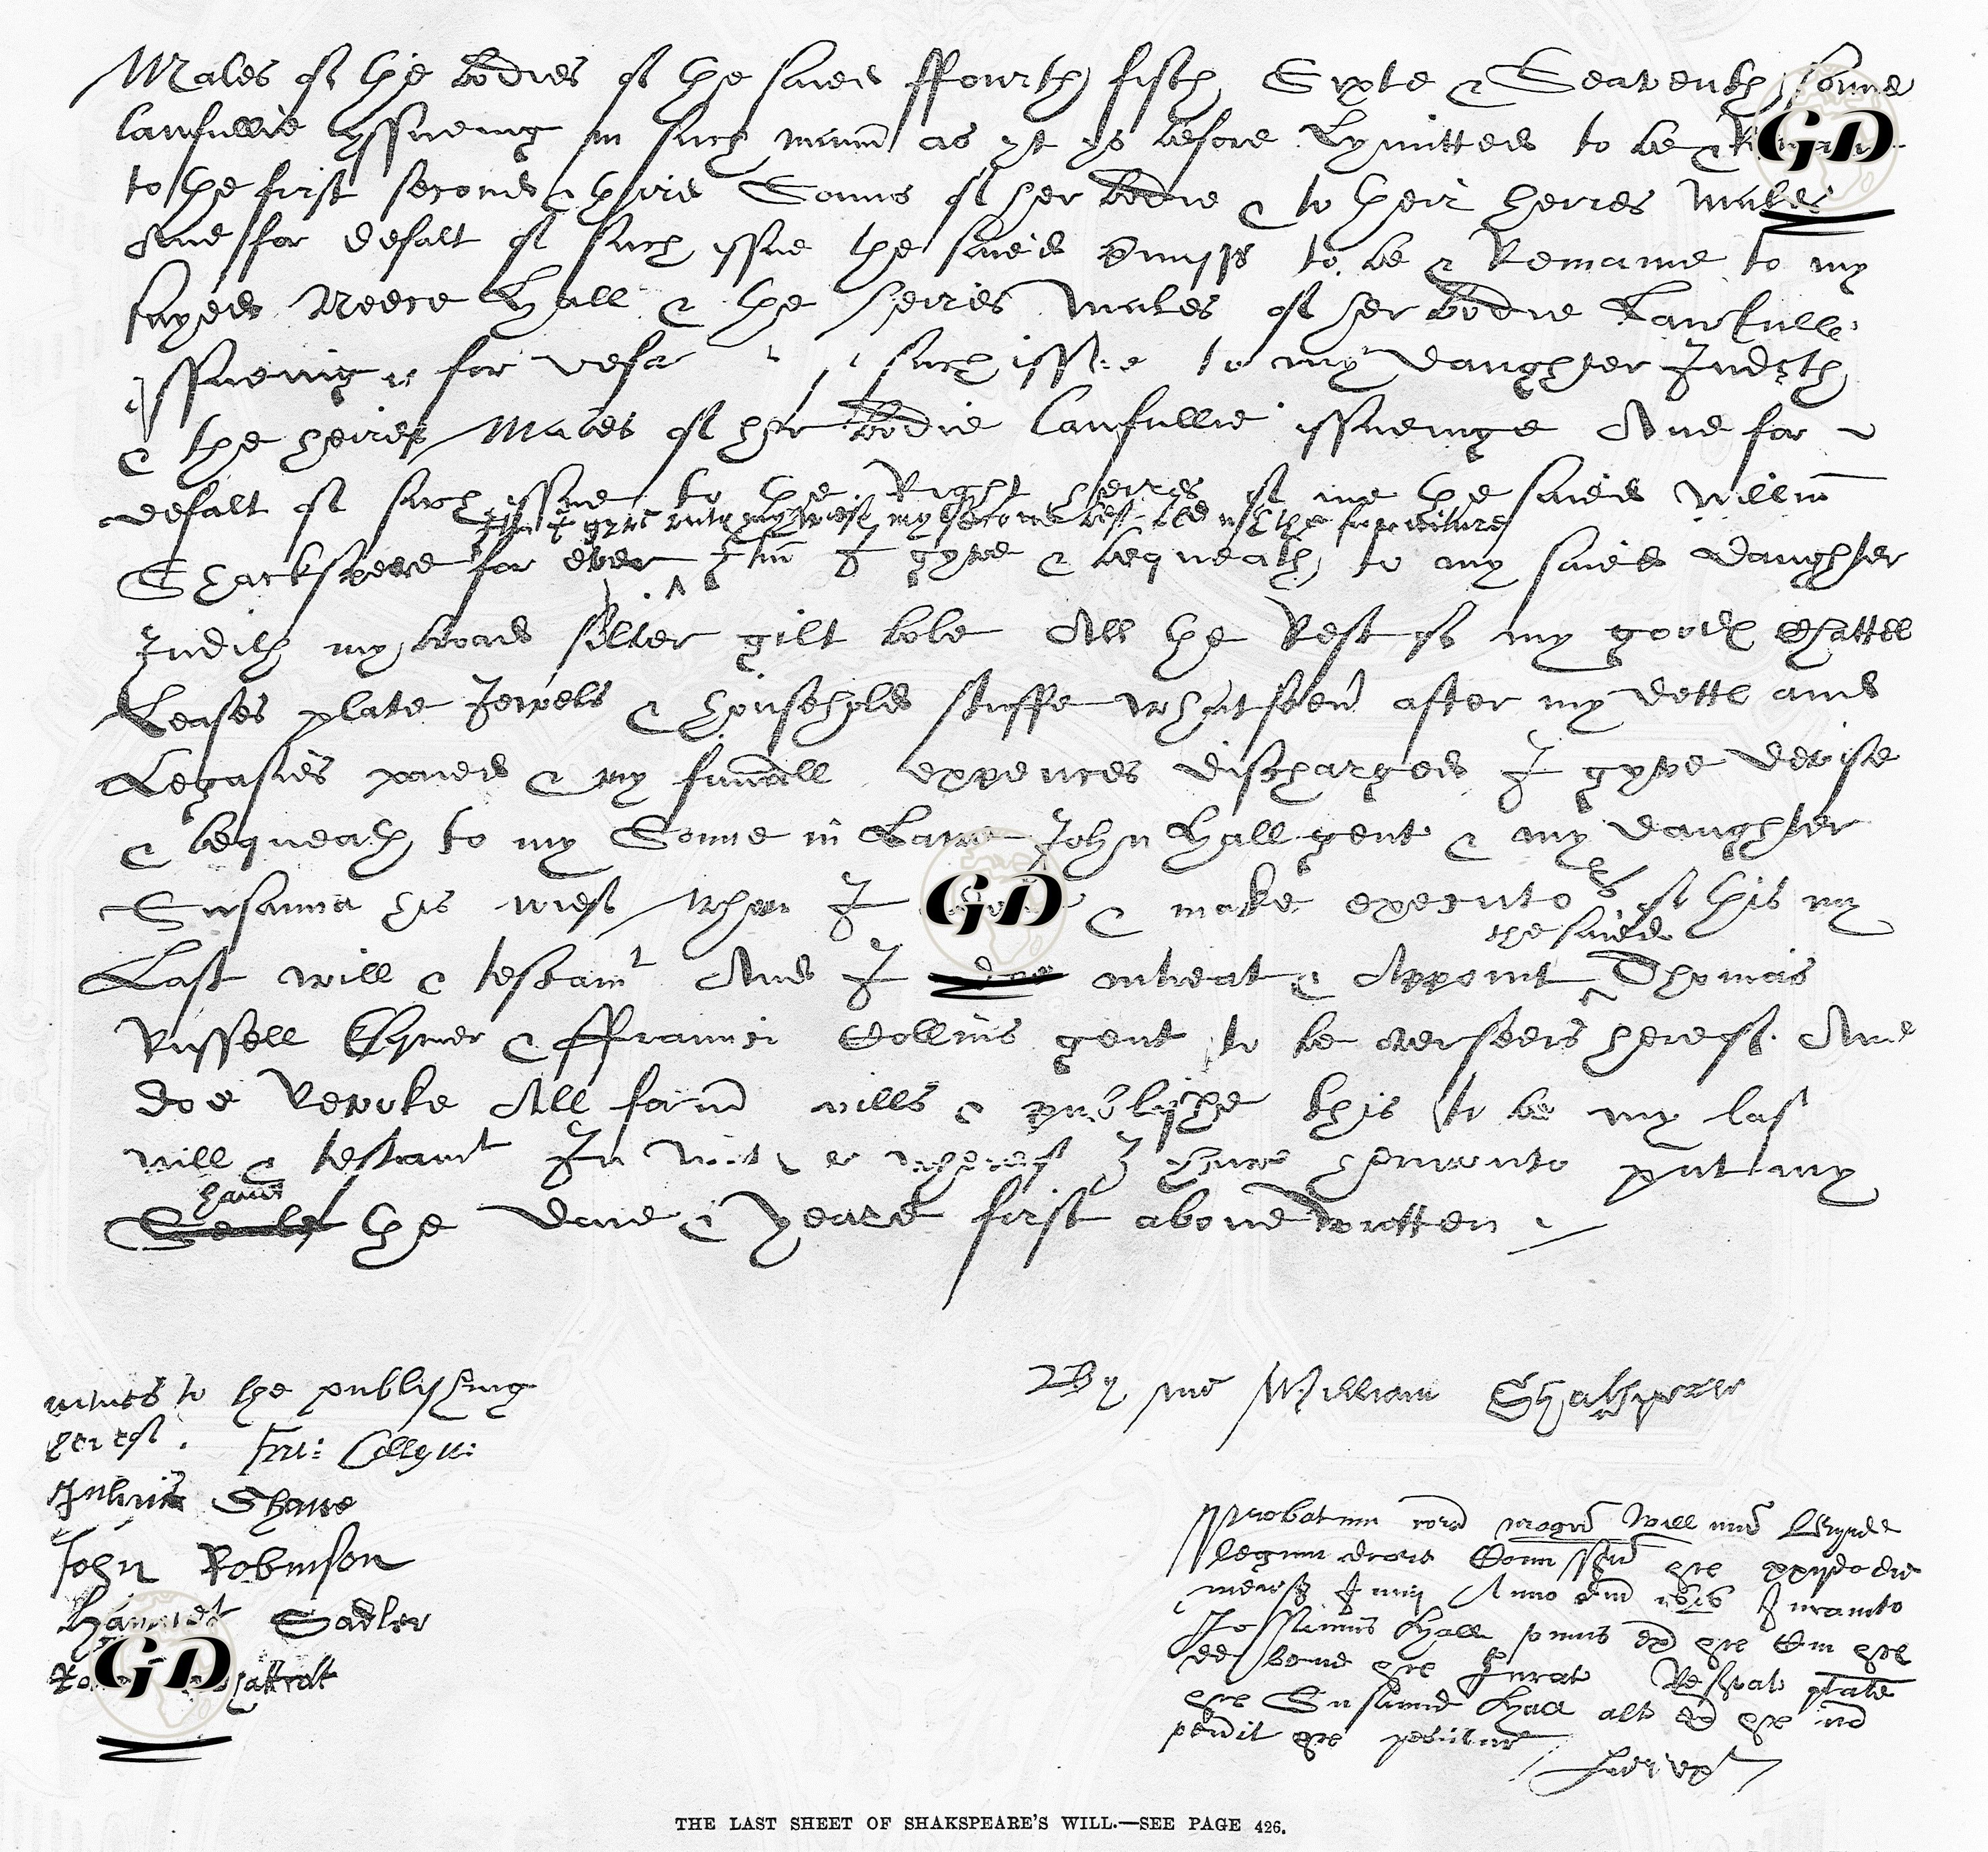 Males of the bodies of the saied ffourth fifth Sixte & Seaventh sonnes
lawfullie yssueing in such mann as yt ys before Lymitted to be &
to the first second & third Sonns of her bodie & to their heires Males
And for defalt of such issue the saied pmisss to be & Remaine to my
sayed Neece Hall & the heires Males of her bodie Lawfullie
yssueing for defa such issue to my daughter Judith
& the heires Males of her bodie lawfullie issueinge And for
defalt of such issue to the Right heires of me the saied Willm
Itm I gyve unto my wief my second best bed wth the furniture
Shackspere for ever Itm I gyve & bequeath to my saied daughter
Judith my broad silver gilt bole All the Rest of my goodes Chattel
Leases plate Jewels & household stuffe whatsoev after my dettes and
Legasies paied & my funall expences discharged I gyve devise
& bequeath to my Sonne in Lawe John Hall gent & my daughter
Susanna his wief whom I & make executors of this my
the saied
Last will & testamt And I doe intreat & Appoint Thomas
Russell Esquier & ffrauncis Collins gent to be overseers hereof And
doe Revoke All form wills & publishe this to be my last
will & testamt In witnes whereof I have hereunto put my
hand
Seale the daie & yeare first above written
witnes to the publishing
hereof. Fra: Collyns
Julius Shawe
John Robinson
Hamnet Sadler
By me William Shakspeare
Probatum corā magrō Willmō Byrde
legum dcore Comissār &c xxijdo die
mensis Junij Anno dni 1616 Juramto
Johannis Hall &c
de bene &c Jurat Resvat ptate
&c Susanne Hall alt &c
GD
GD
GD
THE LAST SHEET OF SHAKSPEARE'S WILL.—SEE PAGE 426.